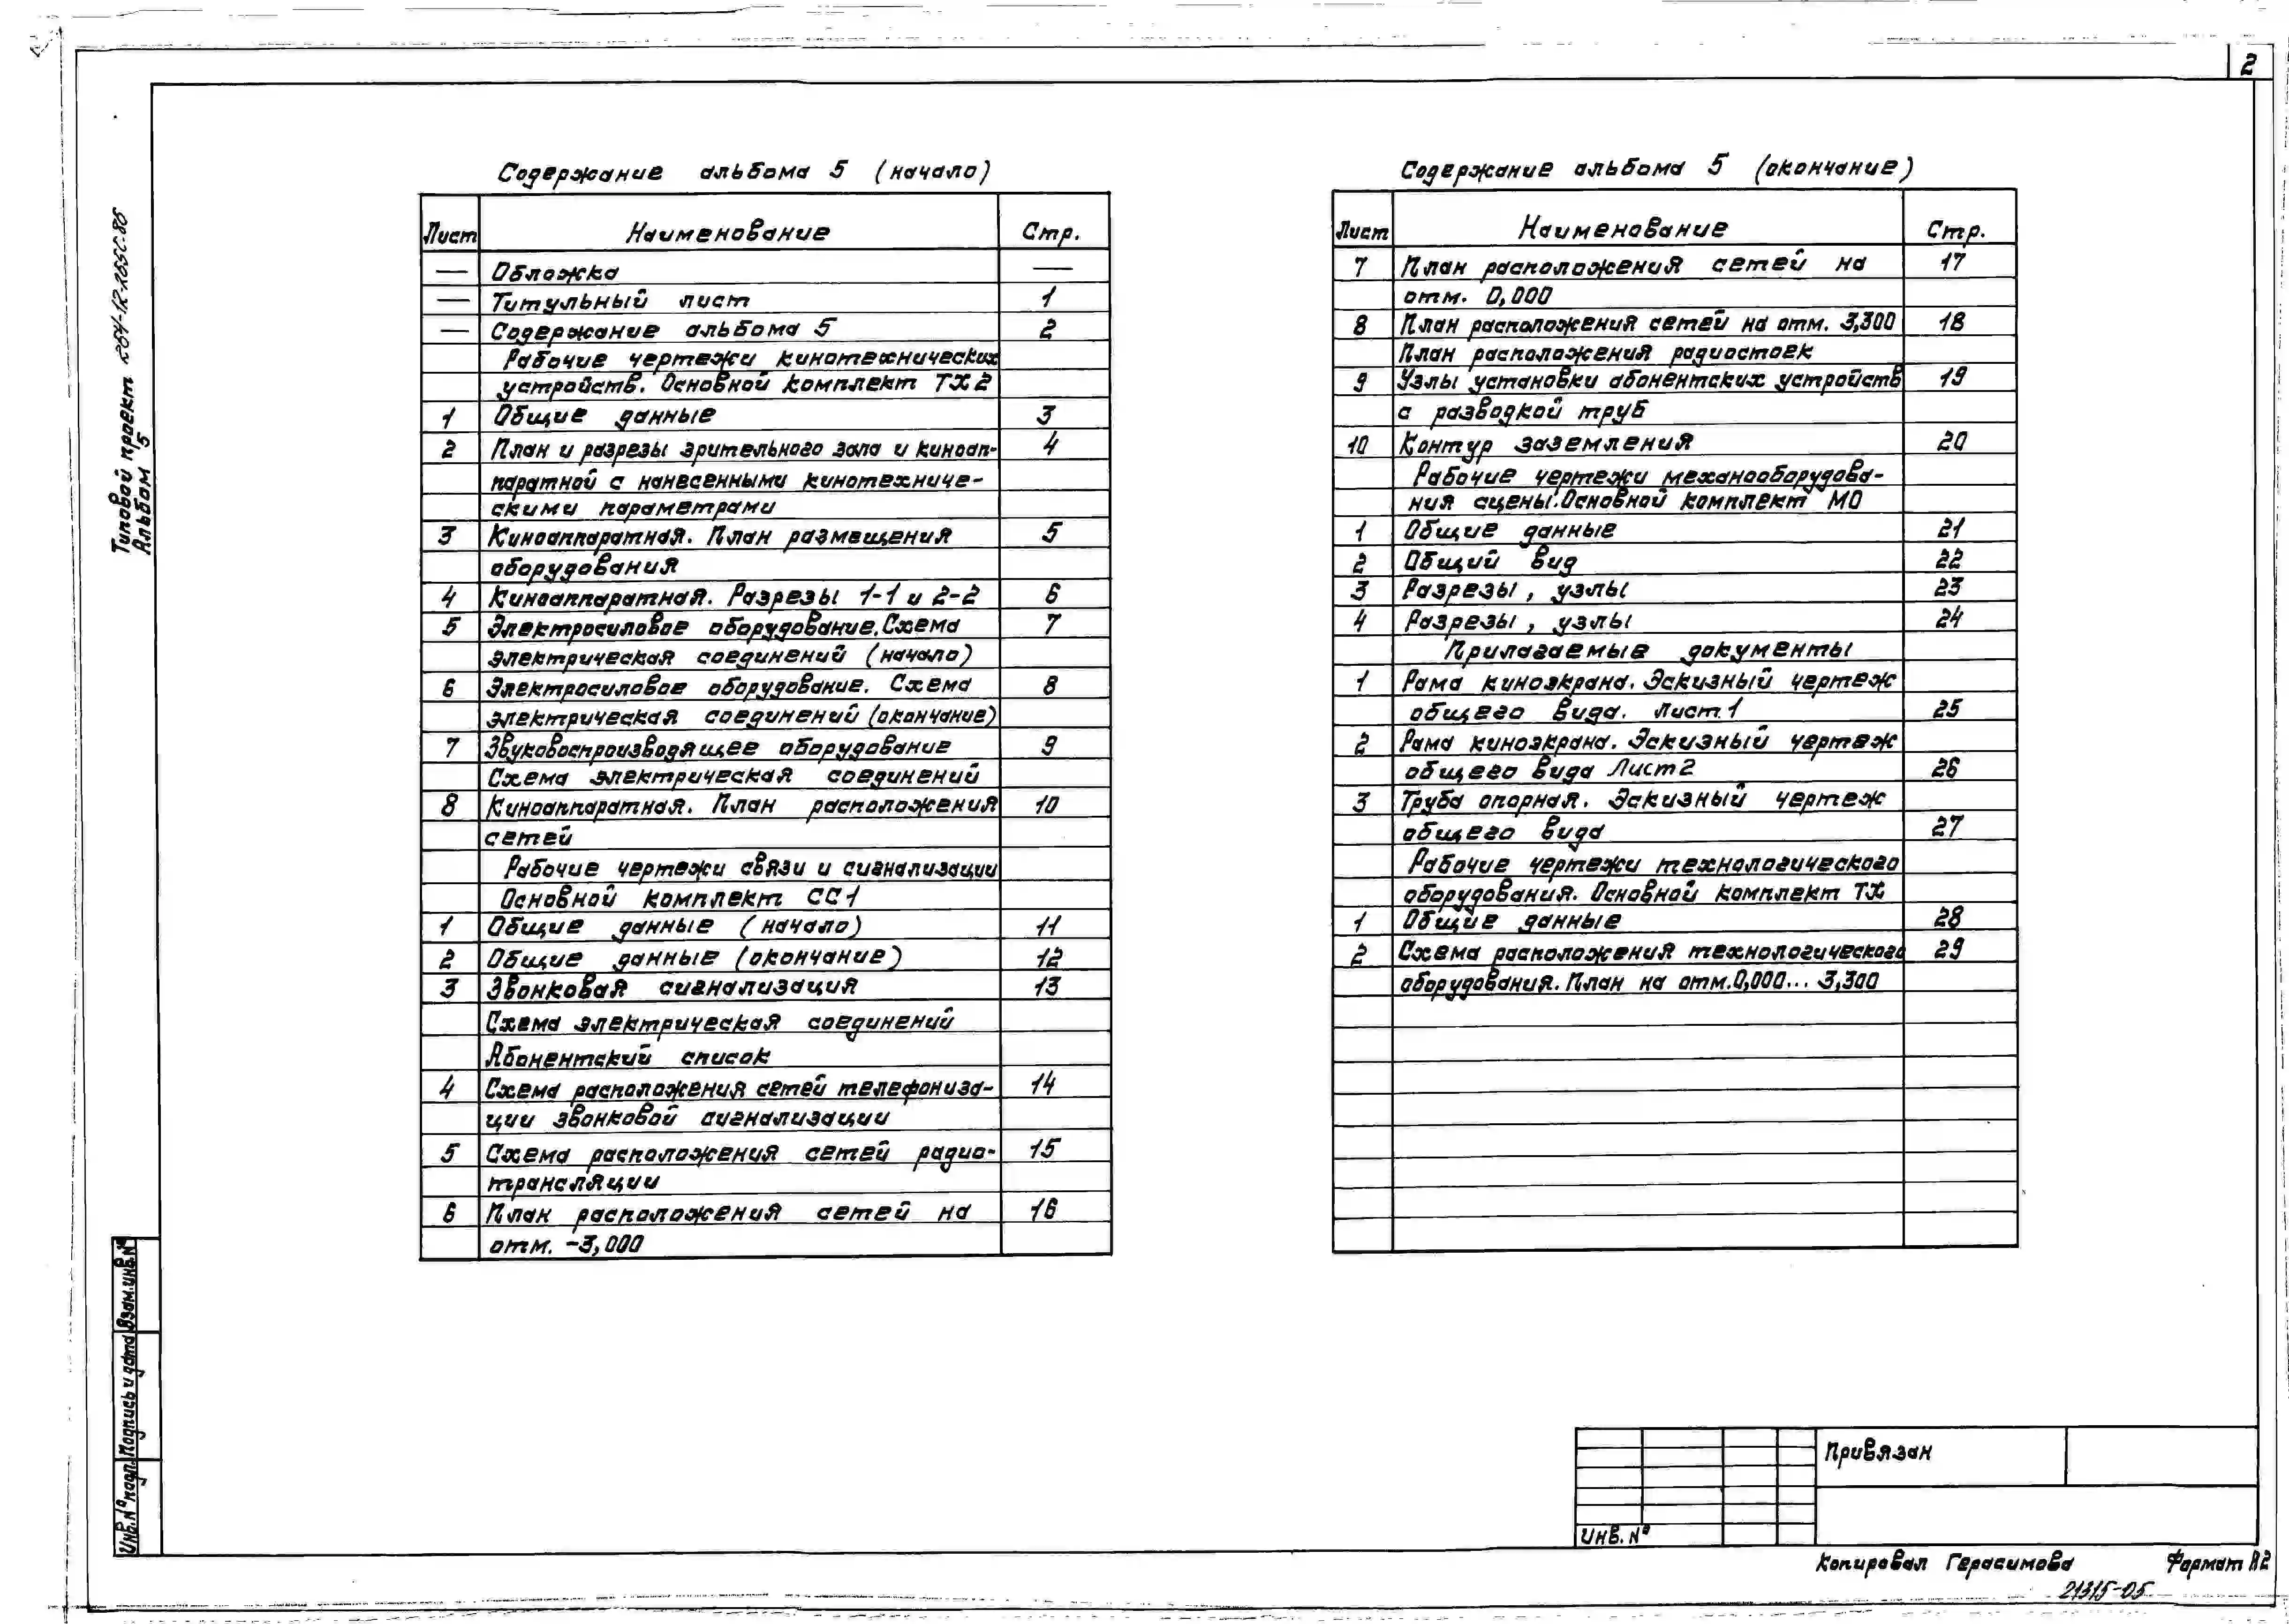 2
Типовой проект 264-12-265с.86
Альбом 5
Содержание альбома 5 (начало)
Лист Наименование Стр.
— Обложка —
— Титульный лист 1
— Содержание альбома 5 2
Рабочие чертежи кинотехнических
устройств. Основной комплект ТХ2
1 Общие данные 3
2 План и разрезы зрительного зала и киноап- 4
паратной с нанесенными кинотехниче-
скими параметрами
3 Киноаппаратная. План размещения 5
оборудования
4 Киноаппаратная. Разрезы 1-1 и 2-2 6
5 Электросиловое оборудование. Схема 7
электрическая соединений (начало)
6 Электросиловое оборудование. Схема 8
электрическая соединений (окончание)
7 Звуковоспроизводящее оборудование 9
Схема электрическая соединений
8 Киноаппаратная. План расположения 10
сетей
Рабочие чертежи связи и сигнализации
Основной комплект СС1
1 Общие данные (начало) 11
2 Общие данные (окончание) 12
3 Звонковая сигнализация 13
Схема электрическая соединений
Абонентский список
4 Схема расположения сетей телефониза- 14
ции звонковой сигнализации
5 Схема расположения сетей радио- 15
трансляции
6 План расположения сетей на 16
отм. -3,000
Содержание альбома 5 (окончание)
Лист Наименование Стр.
7 План расположения сетей на 17
отм. 0,000
8 План расположения сетей на отм. 3,300 18
План расположения радиостоек
9 Узлы установки абонентских устройств 19
с разводкой труб
10 Контур заземления 20
Рабочие чертежи механооборудова-
ния сцены. Основной комплект МО
1 Общие данные 21
2 Общий вид 22
3 Разрезы, узлы 23
4 Разрезы, узлы 24
Прилагаемые документы
1 Рама киноэкрана. Эскизный чертеж
общего вида. Лист 1 25
2 Рама киноэкрана. Эскизный чертеж
общего вида Лист 2 26
3 Труба опорная. Эскизный чертеж
общего вида 27
Рабочие чертежи технологического
оборудования. Основной комплект ТХ
1 Общие данные 28
2 Схема расположения технологического 29
оборудования. План на отм. 0,000... 3,300
Инв.№ подл. Подпись и дата Взам.инв.№
Привязан
Инв. №
Копировал Герасимова Формат А2
21315-05